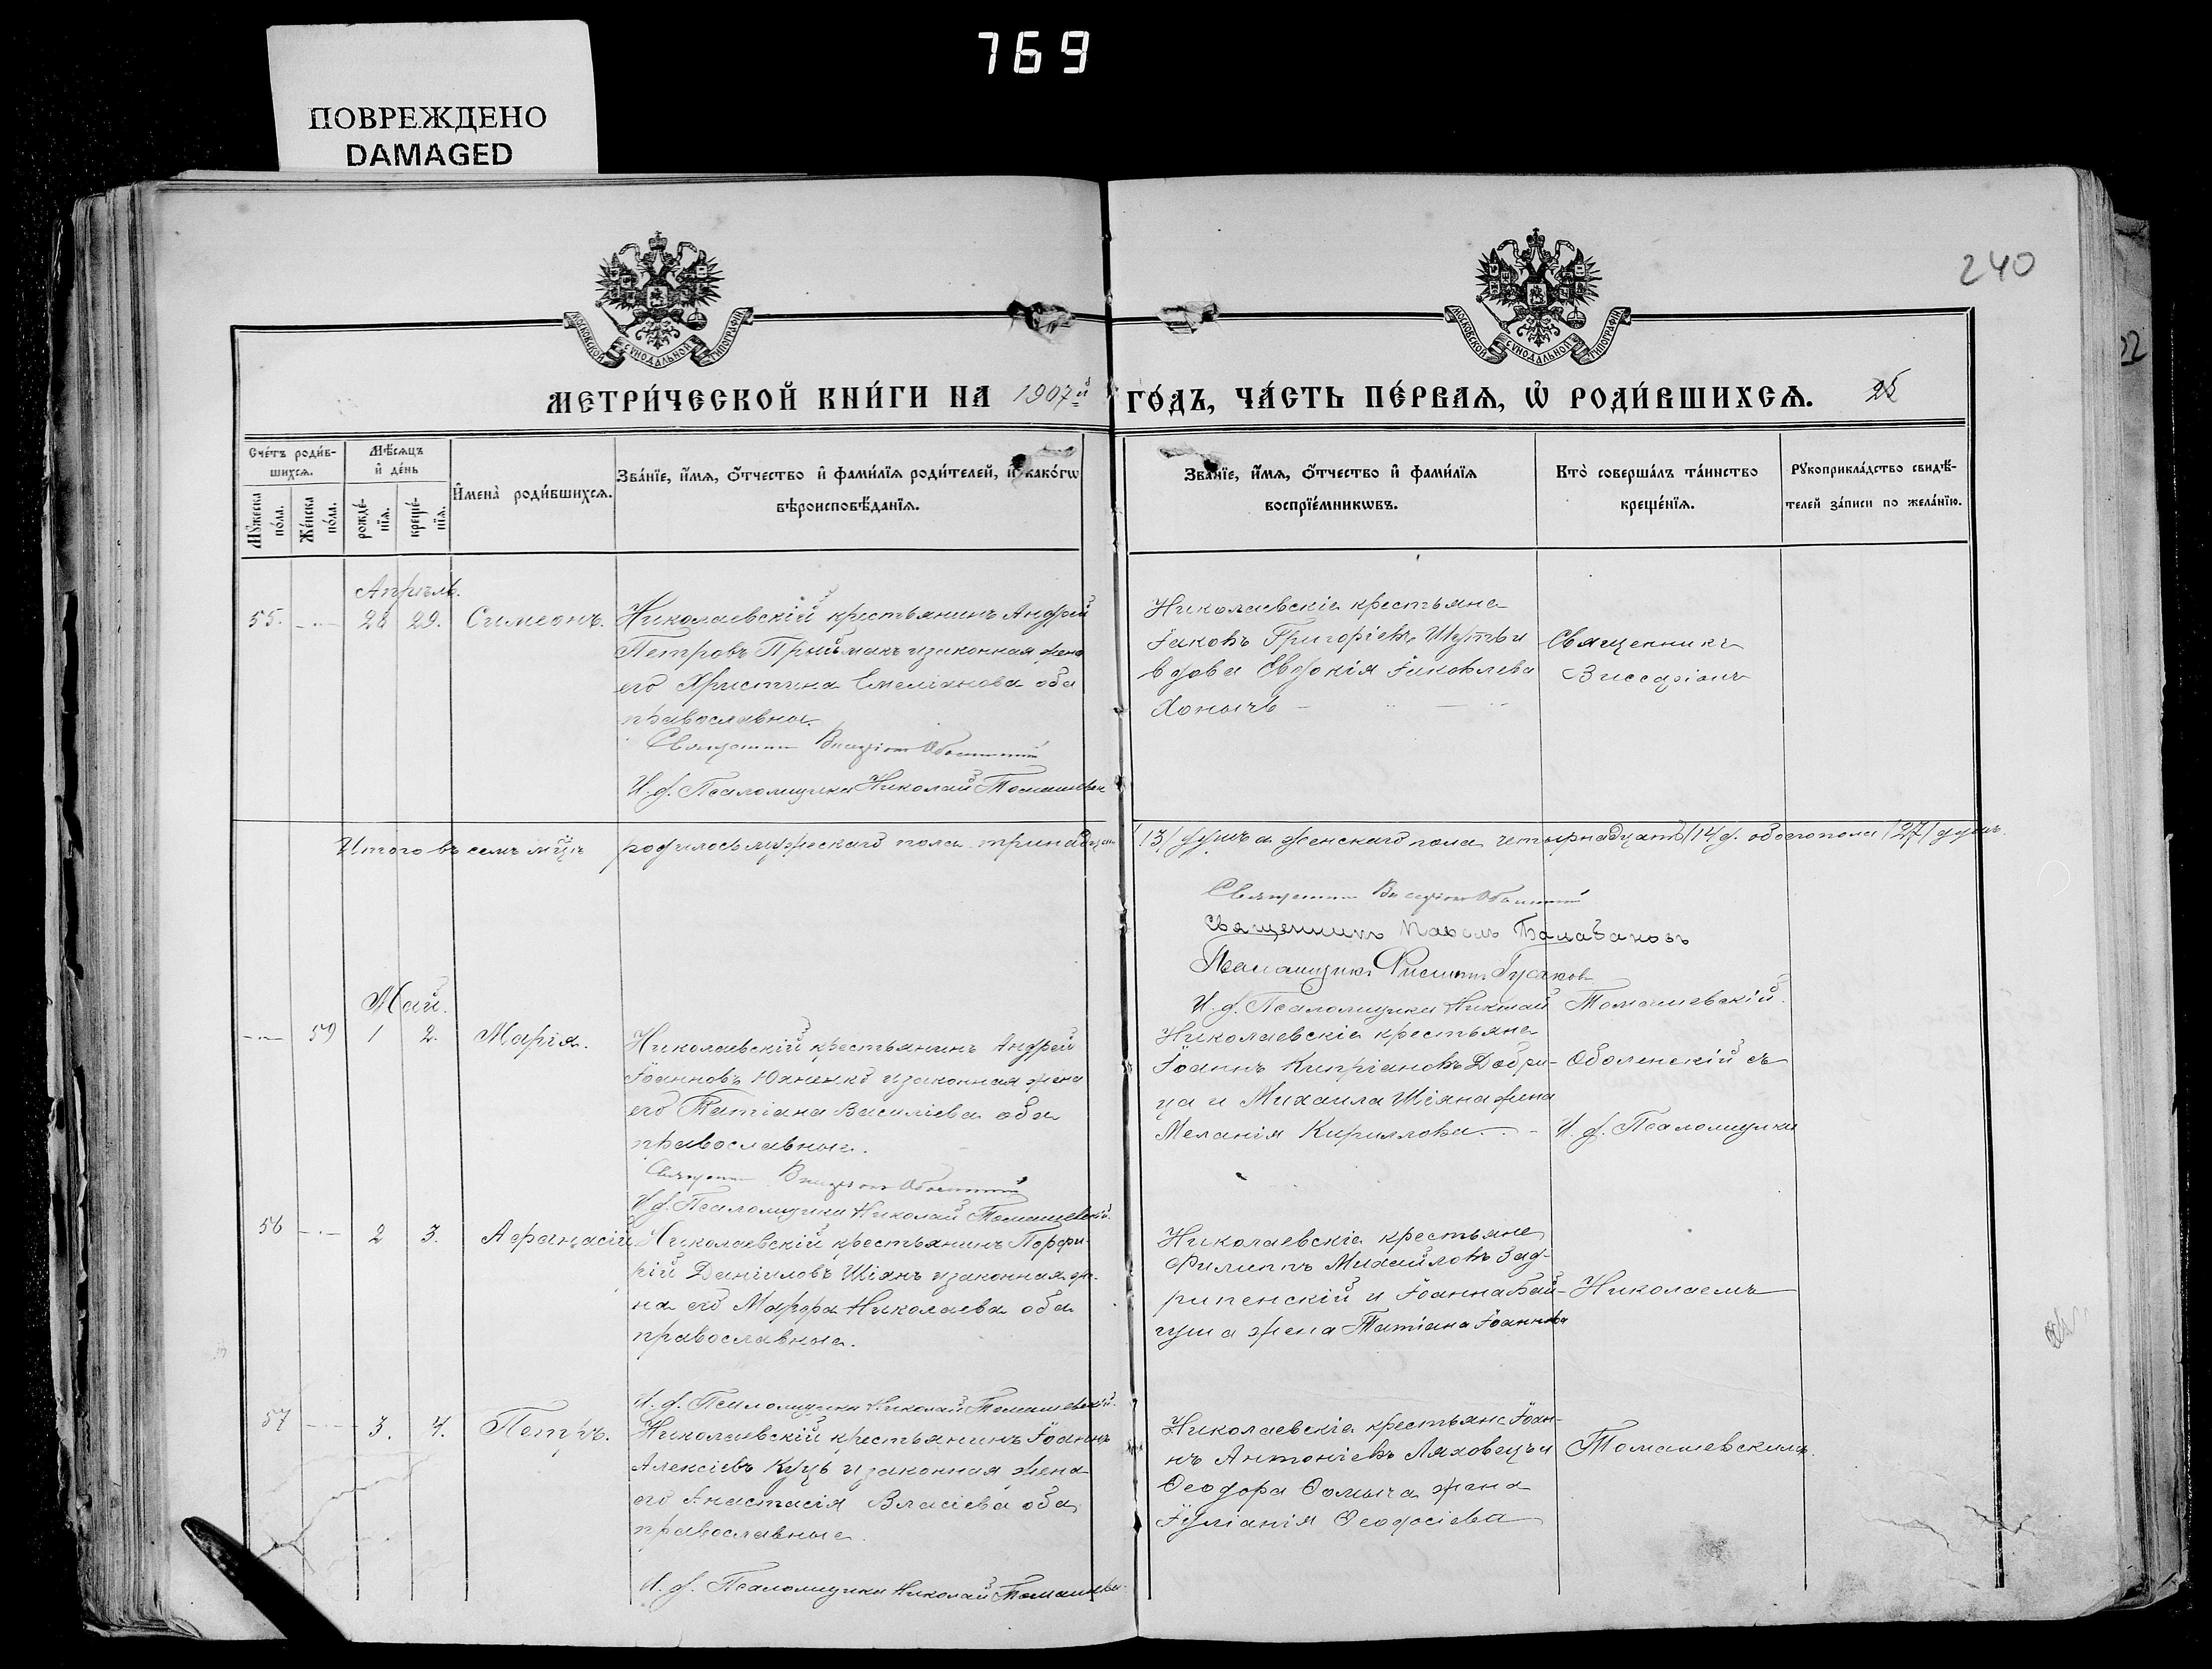 769
ПОВРЕЖДЕНО
DAMAGED
240
МОСКОВСКОЙ СѴНОДАЛЬНОЙ ТИПОГРАФІИ
МОСКОВСКОЙ СѴНОДАЛЬНОЙ ТИПОГРАФІИ
МЕТРИ́ЧЕСКОЙ КНИ́ГИ НА 1907й ГО́ДЪ, ЧА́СТЬ ПЕ́РВАѦ, Ѡ РОДИ́ВШИХСѦ.
Сче́тъ роди́в-
шихсѧ.
Мѣ́сѧцъ
и҆ де́нь
Мꙋ́жеска по́ла.
Же́нска по́ла.
рожде́-
нїѧ.
креще́-
нїѧ.
И҆мена̀ роди́вшихсѧ.
Зва́нїе, и҆́мѧ, ѻ҆́тчество и҆ фами́лїѧ роди́телей, и҆ како́гѡ
вѣроисповѣ́данїѧ.
Зва́нїе, и҆́мѧ, ѻ҆́тчество и҆ фами́лїѧ
воспрїе́мникѡвъ.
Кто̀ соверша́лъ та́инство
креще́нїѧ.
Рꙋкоприкла́дство свидѣ́-
телей за́писи по жела́нїю.
Апрѣль.
55. 28 29. Симеонъ.
Николаевскій крестьянинъ Андрей
Петровъ Приймакъ и законная жена
его Христина Емеліанова оба
православны.
Священникъ Виссаріонъ Оболенскій
И. д. Псаломщика Николай Томашевскій
Николаевскіе крестьяне
Іаковъ Григоріевъ и
вдова Евдокія Іаковлева
Хонычъ
Священникъ
Виссаріонъ
Итого въ семъ м-цѣ родилось мужескаго пола тринадцать (13) душъ а женскаго пола четырнадцать (14) д. обоего пола (27) душъ.
Священникъ Виссаріонъ Оболенскій
Священникъ Павелъ Балабановъ
Псаломщикъ Гусаков
И. д. Псаломщика Николай Томашевскій.
Май.
59 1 2. Марія.
Николаевскій крестьянинъ Андрей
Іоанновъ Юхненко и законная жена
его Татіана Василіева оба
православные.
Священникъ Виссаріонъ Оболенскій
И. д. Псаломщика Николай Томашевскій.
Николаевскіе крестьяне
Іоаннъ Кипріановъ Добри-
ца и Михаила Шіяна жена
Меланія Кириллова.
Оболенскій съ
И. д. Псаломщика
56 2 3. Афанасій
Николаевскій крестьянинъ Порфи-
рій Даніиловъ Шіянъ и законная же-
на его Марфа Николаева оба
православные.
И. д. Псаломщика Николай Томашевскій.
Николаевскіе крестьяне
Филиппъ Михайловъ Зад-
рипенскій и Іоанна Бай-
гуша жена Татіана Іоаннова
Николаемъ
57 3. 4. Петръ.
Николаевскій крестьянинъ Іоаннъ
Алексіевъ Куцъ и законная жена
его Анастасія Власіева оба
православные.
И. д. Псаломщика Николай Томашевскій
Николаевскіе крестьяне Іоан-
нъ Антоніевъ Ляховецъ и
Ѳеодора Ѳомича жена
Іуліанія Ѳеодосіева
Томашевскимъ.